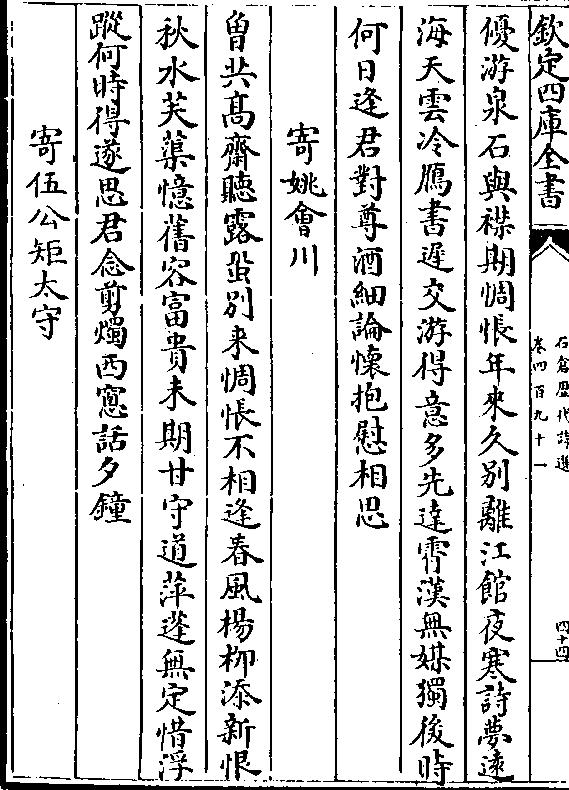 欽定四庫全書
石倉歷代詩選
卷四百九十一
四十四
優游泉石與襟期惆悵年來久別離江館夜寒詩夢遠
海天雲冷鴈書遲交游得意多先達霄漢無媒獨後時
何日逢君對尊酒細論懷抱慰相思
寄姚會川
曾共髙齋聽露蛩别来惆悵不相逢春風楊柳添新恨
秋水芙蕖憶舊容富貴未期甘守道萍蓬無定惜浮
蹤何時得遂思君念剪燭西窻話夕鐘
寄伍公矩太守